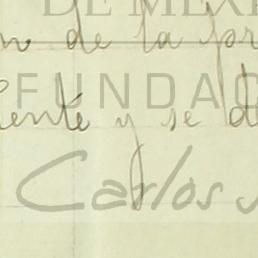 DE MÉXI
n de la pr
FUNDAC
ente y se de
Carlos S